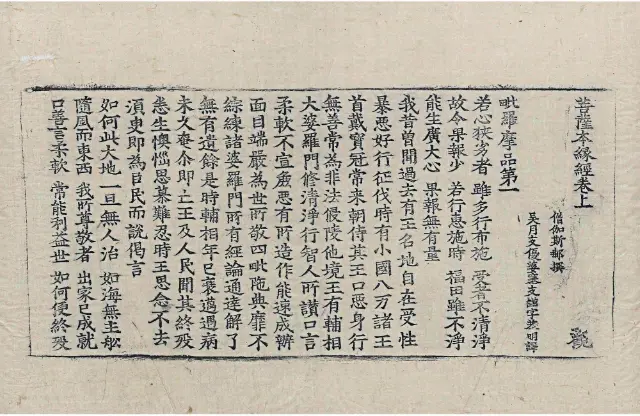 菩薩本縁經卷上
觀
僧伽斯郍撰
吳月支優婆塞支謙字恭明譯
毗羅摩品第一
若心狹劣者 雖多行布施 受者不清淨
故令果報少 若行惠施時 福田雖不淨
能生廣大心 果報無有量
我昔曽聞過去有王名地自在受性
暴惡好行征伐時有小國八万諸王
首戴寶冠常来朝侍其王口惡身行
無善常為非法侵陵他境王有輔相
大婆羅門修清淨行智人所讃口言
柔軟不宣麁惡有所造作能速成辦
面目端嚴為世所敬四毗陁典靡不
綜練諸婆羅門所有經論通達解了
無有遺餘是時輔相年已衰邁遇病
未久奄尒即亡王及人民聞其終殁
悉生懊惱思慕難忍時王思念不去
須臾即為臣民而說偈言
如何此大地 一旦無人治 如海無主舩
隨風而東西 我所尊敬者 出家已成就
口善言柔軟 常能利益世 如何便終殁